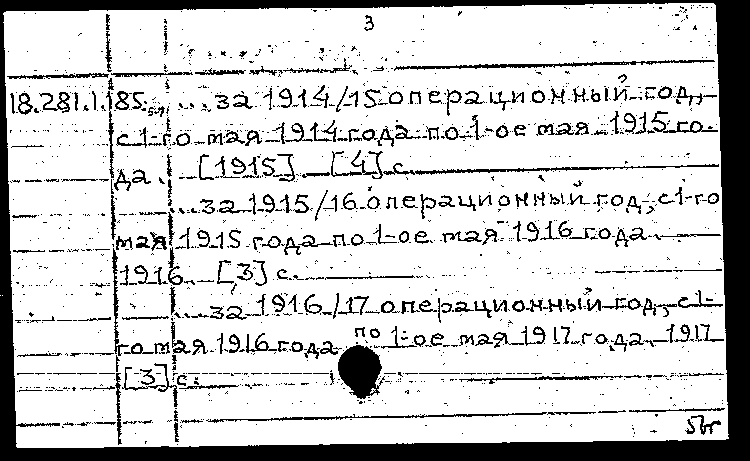 3
18.281.1.185 ...за 1914/15 операционный год,
с 1-го мая 1914 года по 1-ое мая 1915 го-
да. [1915]. [4] с.
...за 1915/16 операционный год, с 1-го
мая 1915 года по 1-ое мая 1916 года.
1916. [3] с.
...за 1916/17 операционный год, с 1-
го мая 1916 года по 1-ое мая 1917 года. 1917
[3] с.